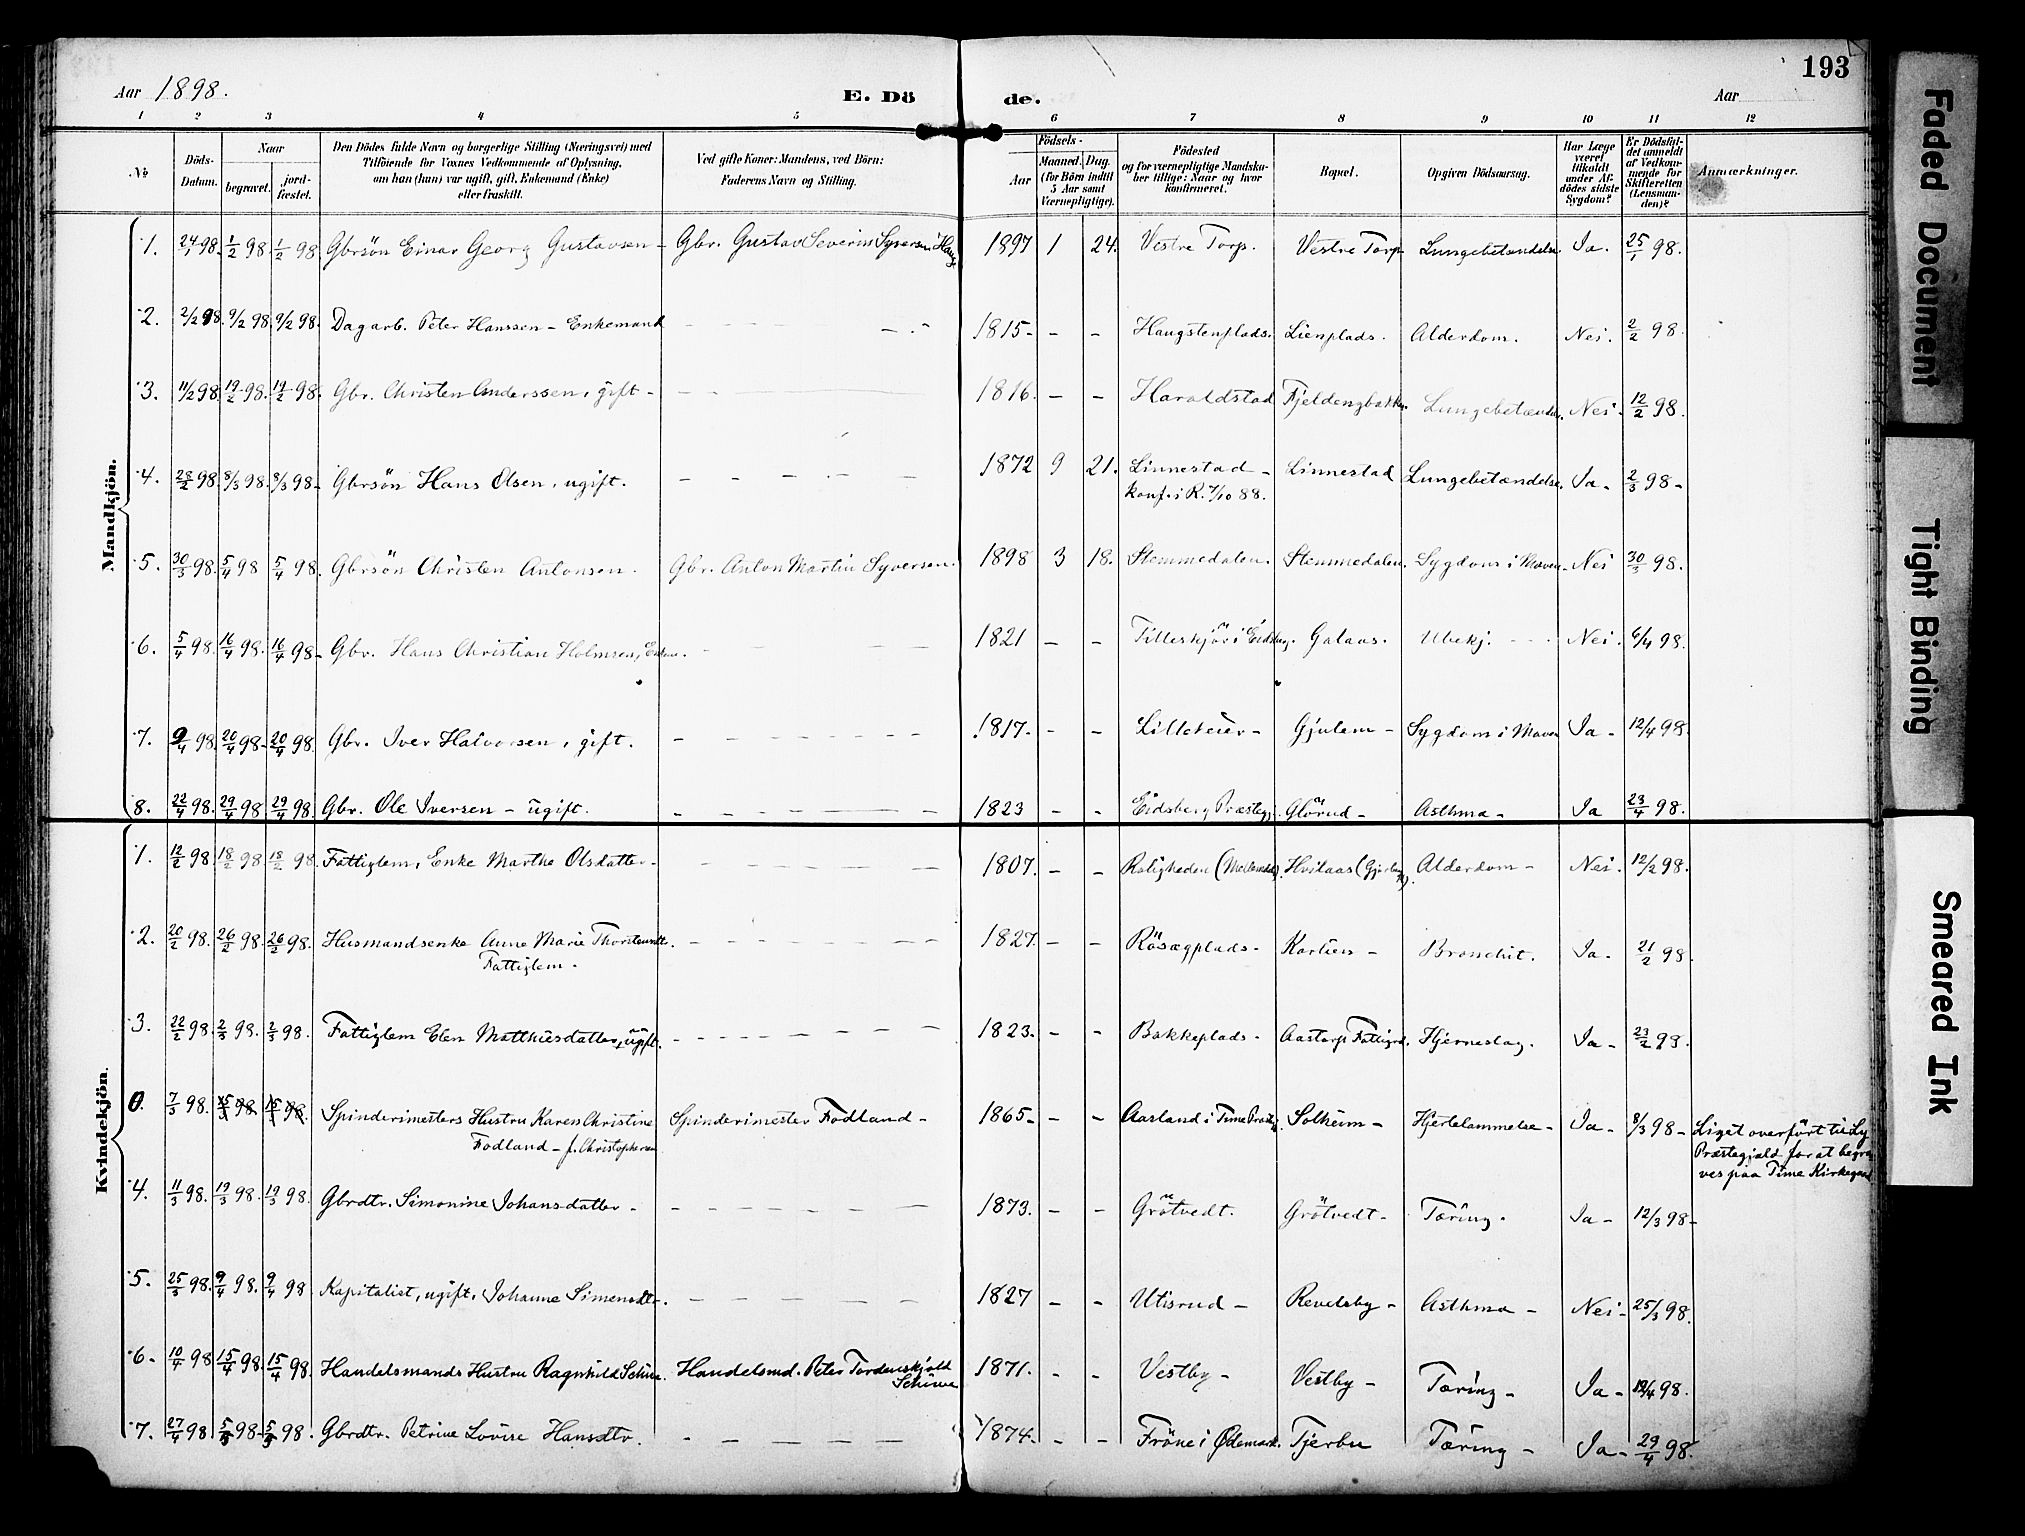 193
Aar 1898.
E. Dö de.
Aar
1 2 3 4 5 6 7 8 9 10 11 12
№
Döds-Datum.
Naar
begravet.
jord-fæstet.
Den Dödes fulde Navn og borgerlige Stilling (Næringsvei) med
Tilföiende for Voxnes Vedkommende af Oplysning,
om han (hun) var ugift, gift, Enkemand (Enke)
eller fraskilt.
Ved gifte Koner: Mandens, ved Börn:
Faderens Navn og Stilling.
Födsels-
Aar
Maaned. Dag.
(for Börn indtil
5 Aar samt
Værnepligtige).
Födested
og for værnepligtige Mandska-
ber tillige: Naar og hvor
konfirmeret.
Bopæl.
Opgiven Dödsaarsag.
Har Læge
været
tilkaldt
under Af-
dödes sidste
Sygdom?
Er Dödsfal-
det anmeldt
af Vedkom-
mende for
Skifteretten
(Lensman-
den)?
Anmærkninger.
Mandkjön.
1. 24/1 98. 1/2 98. 1/2 98 Gbrsön Einar Georg Gustavsen - Gbr. Gustav Severin Syversen Haug 1897 1 24. Vestre Torp. Vestre Torp Lungebetændelse. Ja. 25/1 98.
2. 2/2 98. 9/2 98. 9/2 98. Dagarb. Peter Hanssen - Enkemand 1815 - - Haugstenplads. Lienplads. Alderdom. Nei. 2/2 98.
3. 11/2 98. 19/2 98. 19/2 98. Gbr. Christen Anderssen, gift - 1816. - - Haraldstad Fjeldengbakke. Lungebetænd. Nei. 12/2 98.
4. 28/2 98. 8/3 98. 8/3 98. Gbrsön Hans Olsen, ugift. 1872 9 21. Linnestad - Linnestad Lungebetændelse. Ja - 2/3 98 -
konf. i R. 7/10 88.
5. 30/3 98. 5/4 98 5/4 98. Gbrsön Christen Antonsen. Gbr. Anton Martin Syversen. 1898 3 18. Stemmedalen. Stemmedalen. Sygdom i Maven - Nei 30/3 98.
6. 5/4 98. 16/4 98. 16/4 98 - Gbr. Hans Christian Holmsen, Enkem. 1821 - - i Eidsbg. Galaas. Ubekj. Nei. 6/4 98.
7. 9/4 98. 20/4 98. 20/4 98. Gbr. Iver Halvorsen, gift. 1817. - - Lilleheier - Gjulem - Sygdom i Maven Ja - 12/4 98.
8. 22/4 98. 29/4 98 29/4 98. Gbr. Ole Iversen - ugift. 1823 - - Eidsberg Præstegj. Glörud - Asthma - Ja 23/4 98.
Kvindekjön.
1. 12/2 98. 18/2 98 18/2 98. Fattiglem, Enke Marthe Olsdatter - 1807. - - Roligheden Hvilaas Alderdom - Nei. 12/2 98.
2. 20/2 98. 26/2 98. 26/2 98. Husmandsenke Anne Marie Thorstensdt. 1827. - - Rösægplads - Karlien - Bronchit. Ja - 21/2 98.
Fattiglem -
3. 22/2 98. 2/3 98. 2/3 98. Fattiglem Elen Matthiesdatter, ugift. 1823. - - Bakkeplads - Aastorp Fattiggd. Hjerneslag. Ja - 23/2 98.
0. 7/3 98. 15/3 98. 15/3 98. Spinderimesters Hustru Karen Christine Spinderimester Fodland - 1865 - - Aasland i Time Præstegj. Solheim - Hjertelammelse - Ja - 8/3 98 - Liget overfört til Ly
Fodland - f. Christophersen Præstegjæld for at begra-
ves paa Time Kirkegaard
4. 11/3 98. 19/3 98. 19/3 98. Gbrdtr. Simonine Johansdatter - 1873. - - Grötvedt. Grötvedt - Tæring. Ja - 12/3 98 -
5. 25/3 98. 9/4 98. 9/4 98 Kapitalist, ugift, Johanne Simensdtr. 1827 - - Utisrud - Revelsby - Asthma - Nei - 25/3 98.
6 - 10/4 98 15/4 98. 15/4 98. Handelsmands Hustru Ragnhild Schiwe. Handelsmd. Peter Tordenskjold 1871. - - Vestby - Vestby - Tæring - Ja - 12/4 98.
Schiwe
7. 27/4 98 5/5 98 - 5/5 98. Gbrdtr. Petrine Lovise Hansdtr. 1874. - - Fröne i Ødemark. Tjerbu Tæring - Ja - 29/4 98.
Faded Document
Tight Binding
Smeared Ink